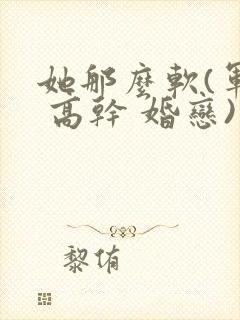 她那麼軟(軍
高幹 婚戀)
黎侑